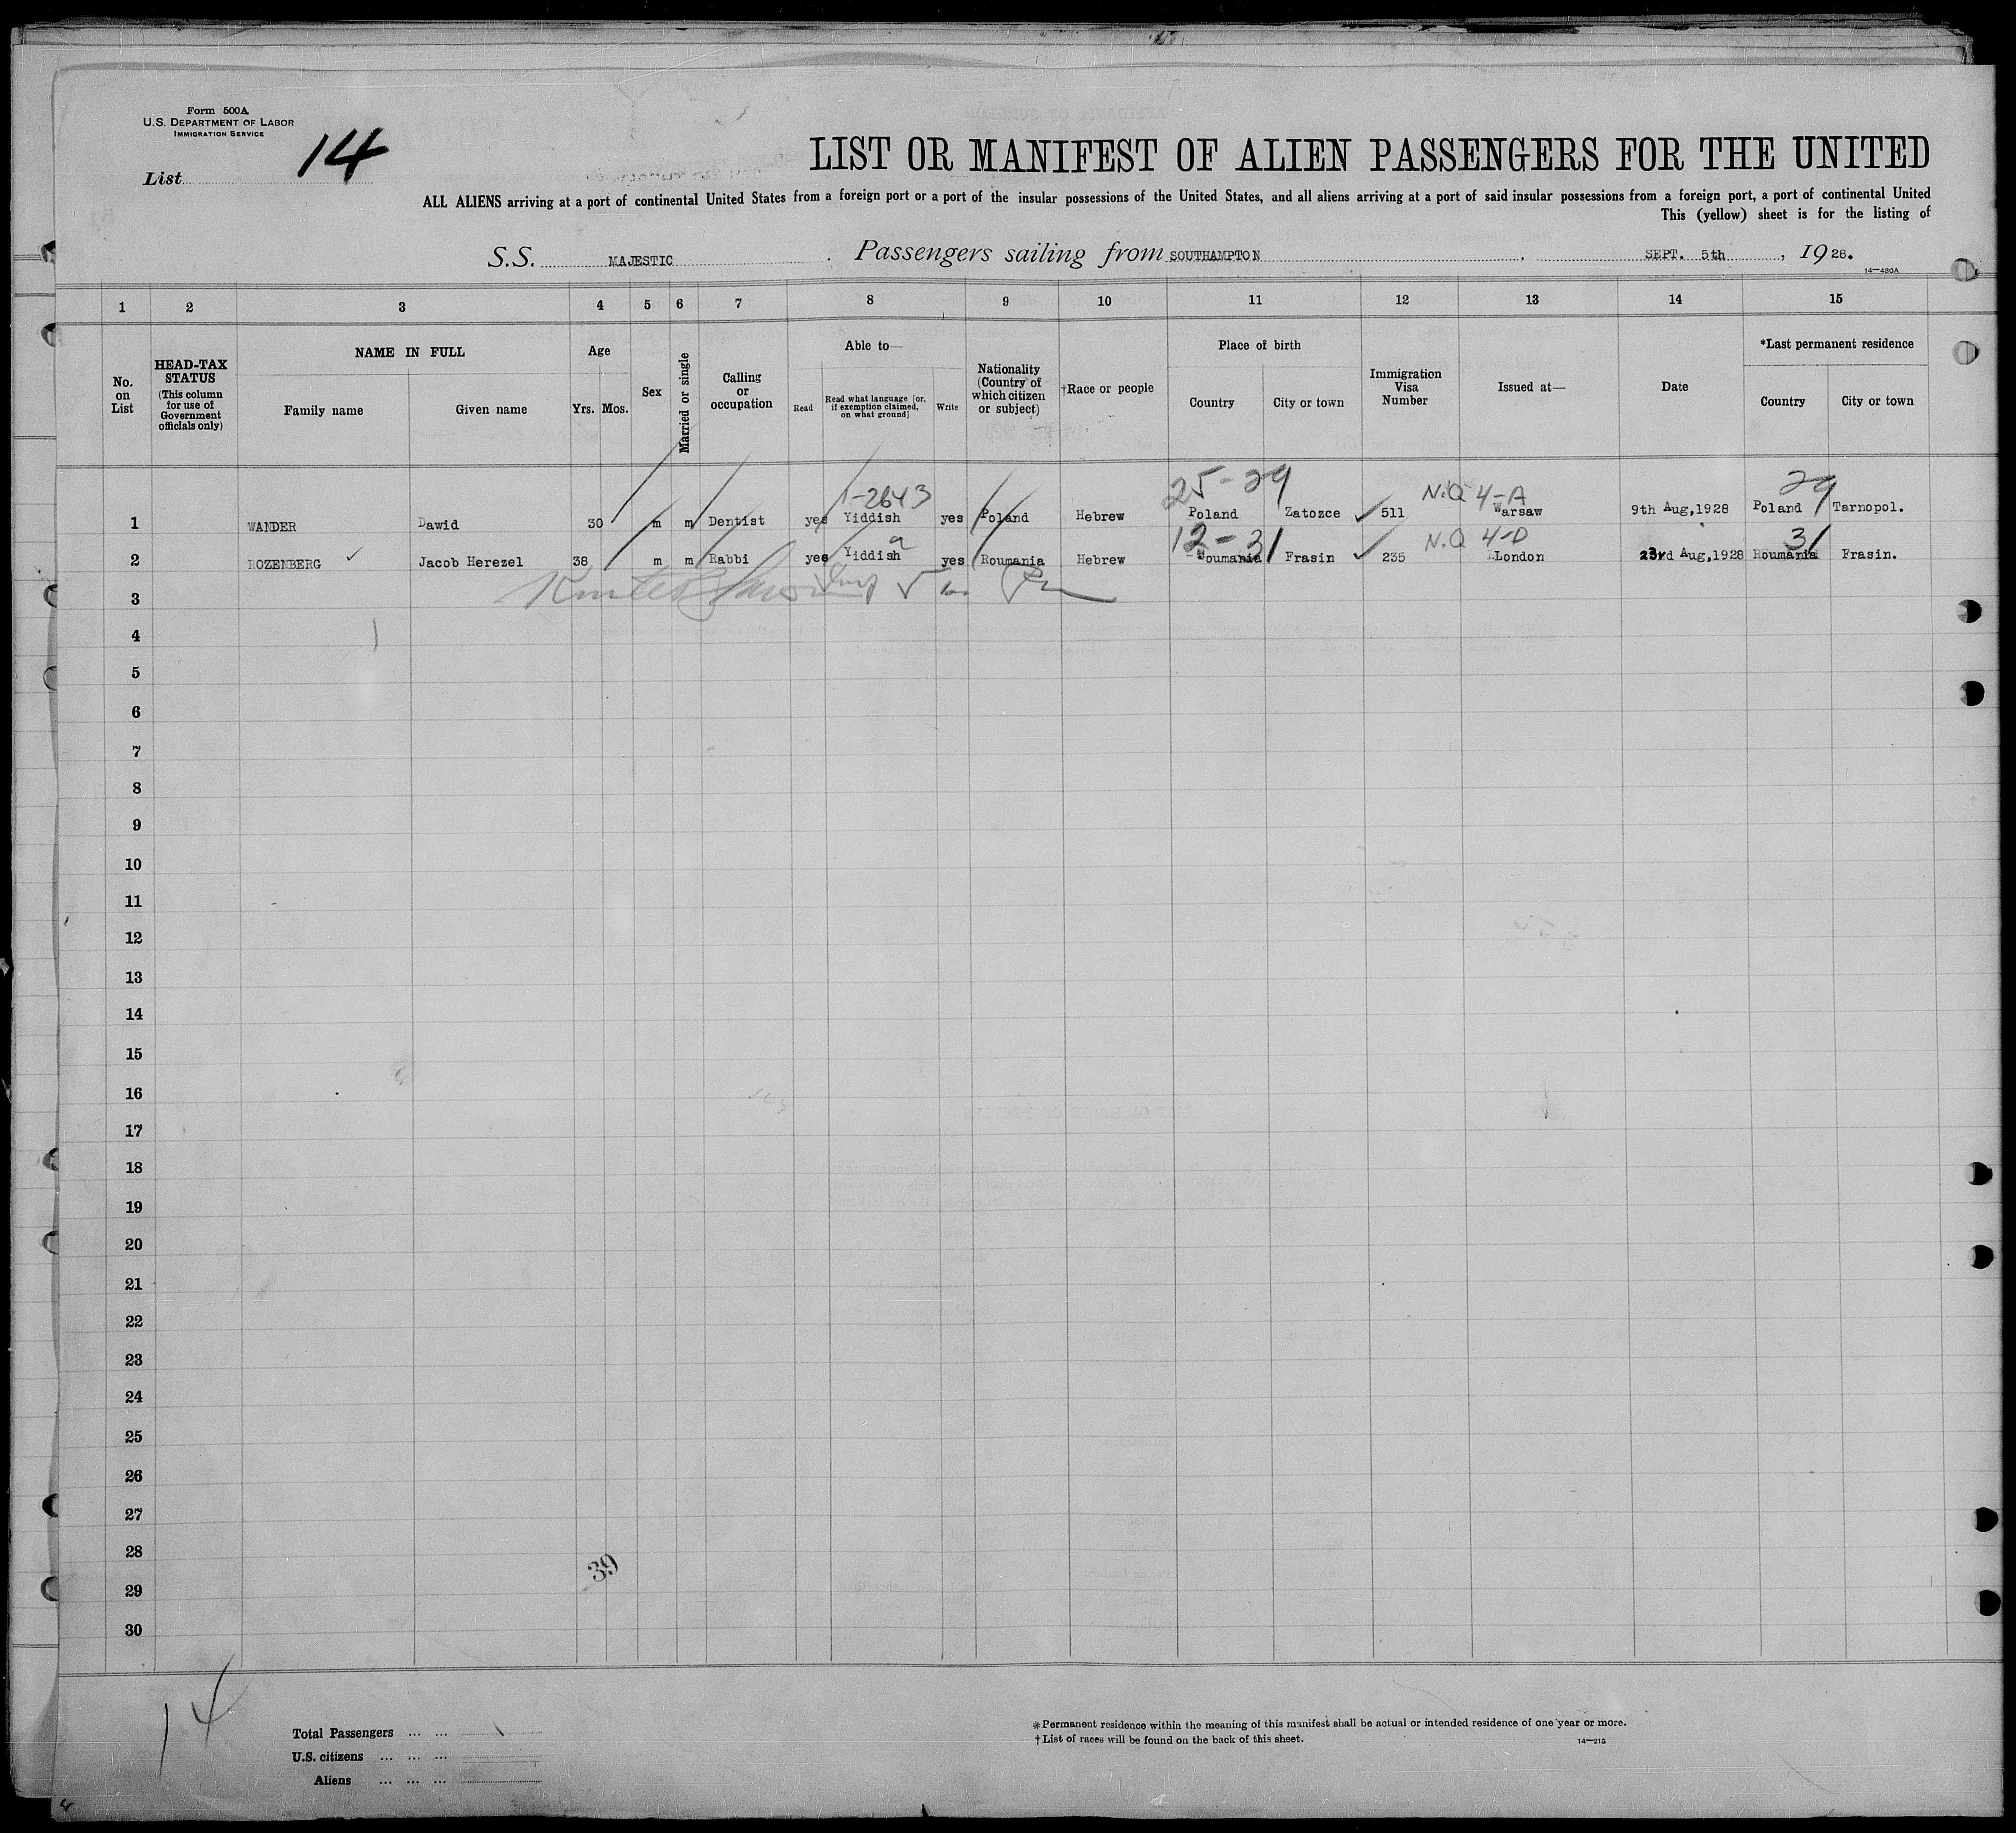 Form 500A
U.S. DEPARTMENT OF LABOR
IMMIGRATION SERVICE
List 14
LIST OR MANIFEST OF ALIEN PASSENGERS FOR THE UNITED
ALL ALIENS arriving at a port of continental United States from a foreign port or a port of the insular possessions of the United States, and all aliens arriving at a port of said insular possessions from a foreign port, a port of continental United
This (yellow) sheet is for the listing of
S.S. MAJESTIC. Passengers sailing from SOUTHAMPTON, SEPT. 5th, 1928.
14—430A
1 2 3 4 5 6 7 8 9 10 11 12 13 14 15
No. on List
HEAD-TAX STATUS (This column for use of Government officials only)
NAME IN FULL
Family name Given name
Age
Yrs. Mos.
Sex
Married or single
Calling or occupation
Able to—
Read
Read what language [or, if exemption claimed, on what ground]
Write
Nationality (Country of which citizen or subject)
†Race or people
Place of birth
Country City or town
Immigration Visa Number
Issued at—
Date
*Last permanent residence
Country City or town
1-2643 25-29 N.Q 4-A 29
1 WANDER Dawid 30 m m Dentist yes Yiddish yes Poland Hebrew Poland Zatozce ✓ 511 Warsaw 9th Aug,1928 Poland Tarnopol.
a 12-31 N.Q 4-D 31
2 ROZENBERG ✓ Jacob Herezel 38 m m Rabbi yes Yiddish yes Roumania Hebrew Roumania Frasin ✓ 235 London 23rd Aug,1928 Roumania Frasin.
3
4
5
6
7
8
9
10
11
12
13
14
15
16
17
18
19
20
21
22
23
24
25
26
27
28
39
29
30
14
Total Passengers ... ...
U.S. citizens ... ... ...
Aliens ... ... ...
*Permanent residence within the meaning of this manifest shall be actual or intended residence of one year or more.
†List of races will be found on the back of this sheet.
14—213